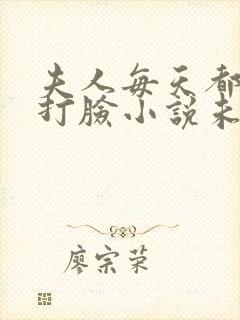 夫人每天都
打臉小說未
廖宗荣